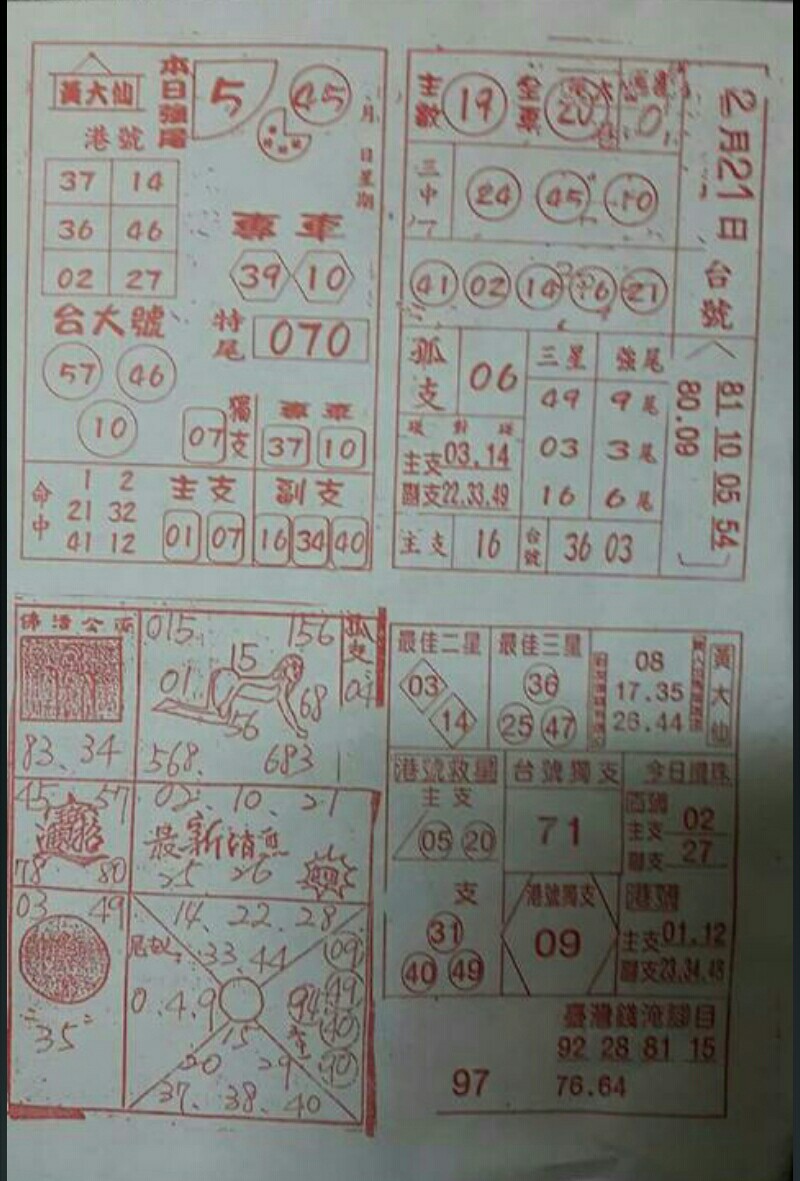 黃大仙
港號
本日強尾
5
45
月 日 星期
37 14
36 46
02 27
專車
39 10
台大號
57 46
10
特尾 070
07 獨支
專車
37 10
命中
1 2
21 32
41 12
主支
01 07
副支
16 34 40
主數 19
全票 20
0
三中一
24 45 10
41 02 14 21
孤支 06
三星 強尾
49 9尾
03 3尾
16 6尾
主支03.14
副支22.33.49
主支 16
台號 36 03
2月21日 台號
81 10 05 54
80.09
015 156
15
01
68
56
568. 683
孤支
83、34
45 57
78 80
02、10、21
最新消息
25 26
03 49
35
14、22、28
33、44
0.4.9
09
94
49
40
90
15
20 29
37、38、40
最佳二星
03
14
最佳三星
36
25 47
08
17.35
26.44
黃大仙
港號救星
主支
05 20
台號獨支
71
今日明珠
主支 02
副支 27
支
31
40 49
港號獨支
09
港號
主支01.12
副支23.34.48
臺灣錢淹腳目
92 28 81 15
97 76.64